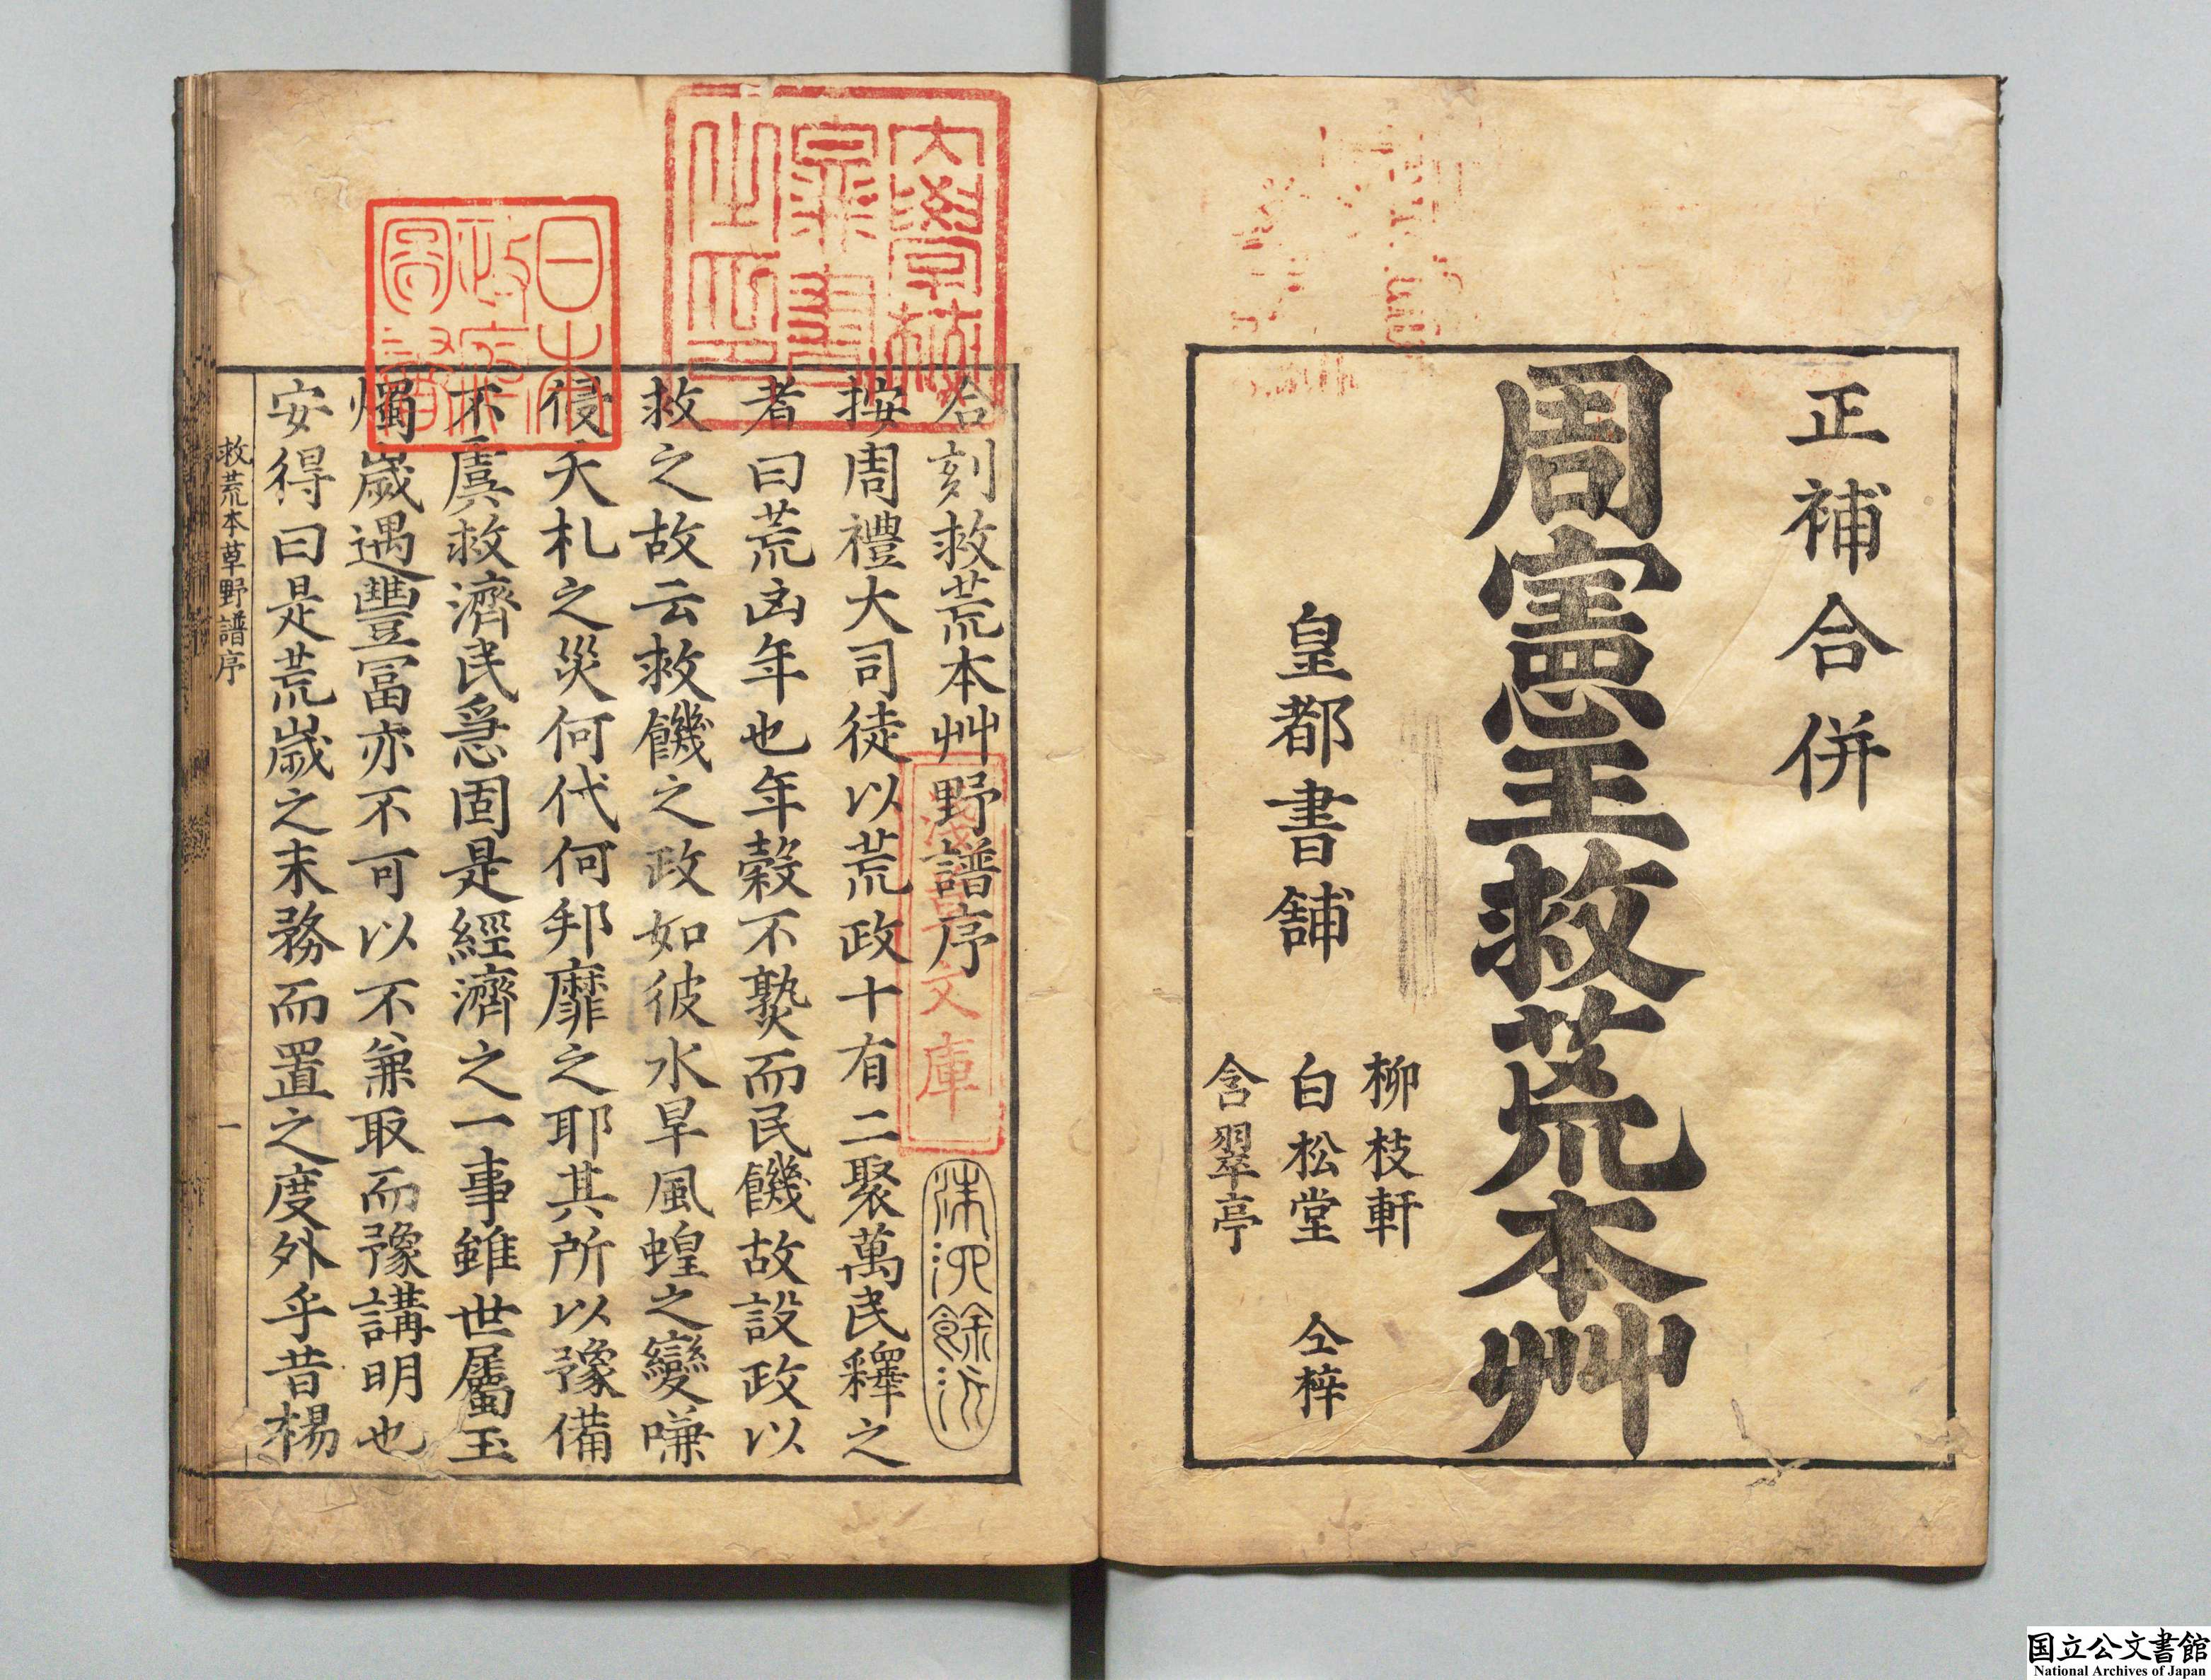 正補合併
周憲王救荒本艸
皇都書舗
柳枝軒
白松堂
含翠亭
仝梓
合刻救荒本艸野譜序
按周禮大司徒以荒政十有二聚萬民釋之
者曰荒凶年也年穀不熟而民饑故設政以
救之故云救饑之政如彼水旱風蝗之變嗛
侵夭札之災何代何邦靡之耶其所以豫備
不虞救濟民急固是經濟之一事雖世屬玉
燭歲遇豐冨亦不可以不兼取而豫講明也
安得曰是荒歲之末務而置之度外乎昔楊
救荒本草野譜序
一
大學校
圖書
之印
日本
政府
圖書
淺草文庫
国立公文書館
National Archives of Japan